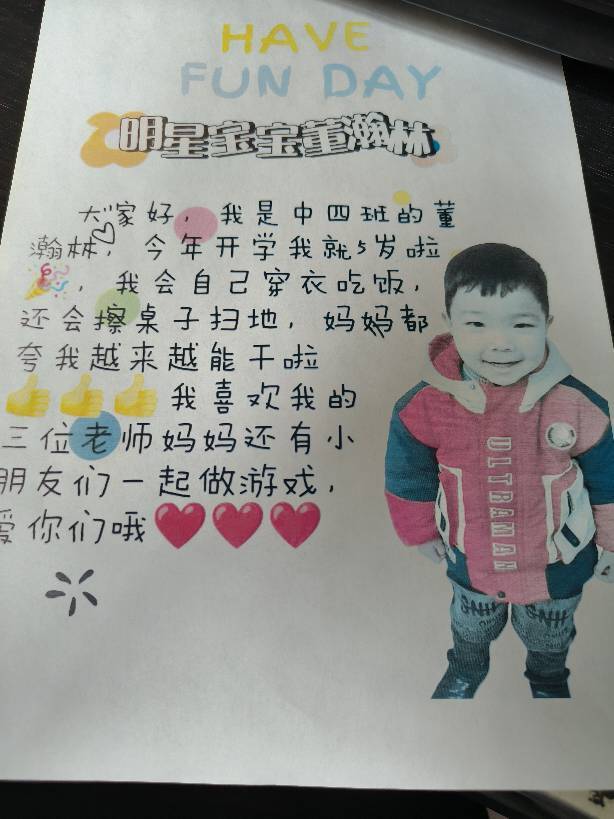 HAVE
FUN DAY
明星宝宝董瀚林
大家好，我是中四班的董
瀚林，今年开学我就5岁啦
🎉，我会自己穿衣吃饭，
还会擦桌子扫地，妈妈都
夸我越来越能干啦
👍👍👍我喜欢我的
三位老师妈妈还有小
朋友们一起做游戏，
爱你们哦❤❤❤
ULTRAMAN